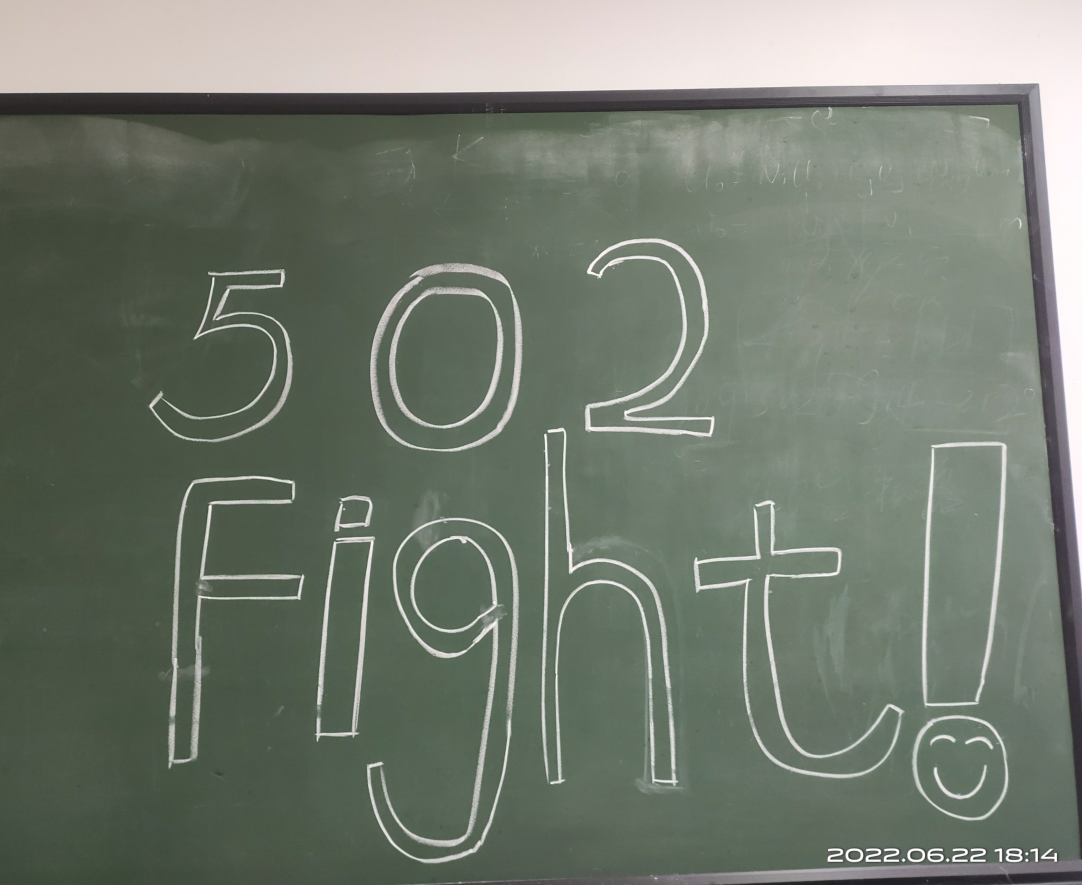 502
Fight!
2022.06.22 18:14